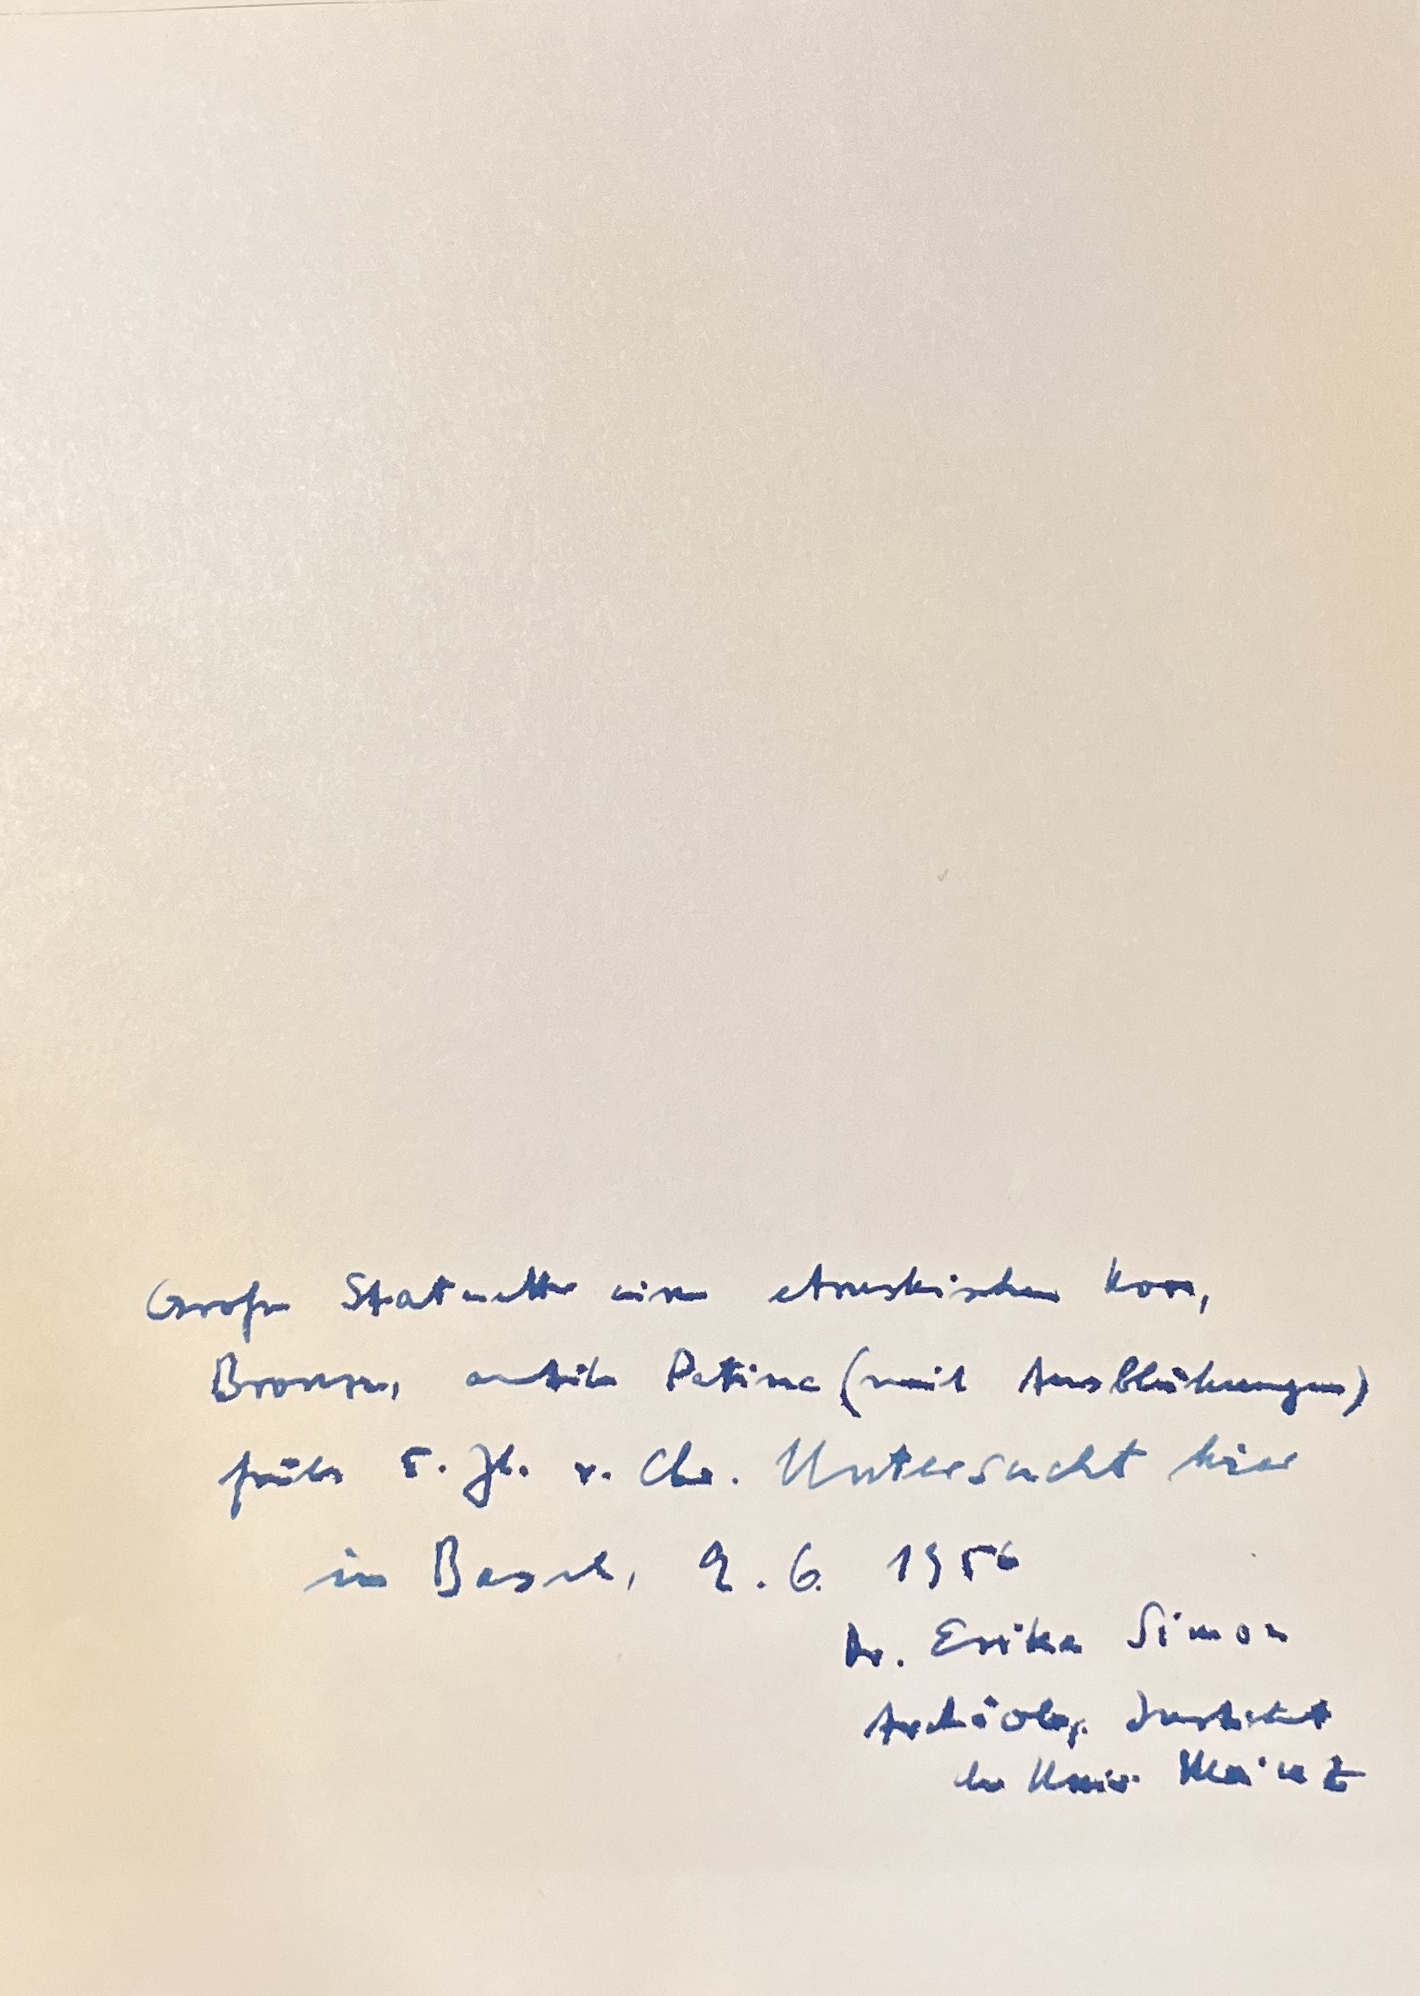 Große Statuette einer etruskischen Kore,
Bronze, antike Patina (mit Ausblühungen)
frühes 5. Jh. v. Chr. Untersucht hier
in Basel, 9. 6. 1956
Dr. Erika Simon
Archäolog. Institut
der Univ. Mainz